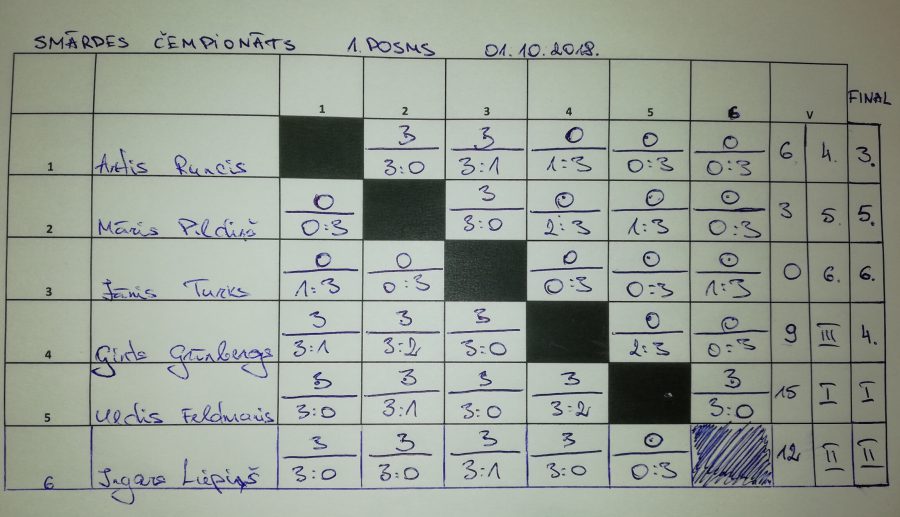 SMĀRDES ČEMPIONĀTS 1. POSMS 01.10.2018.
1 2 3 4 5 6 V FINAL
1 Artis Runcis 3 3:0 3 3:1 0 1:3 0 0:3 0 0:3 6 4. 3.
2 Māris Pildiņš 0 0:3 3 3:0 0 2:3 0 1:3 0 0:3 3 5. 5.
3 Jānis Turks 0 1:3 0 0:3 0 0:3 0 0:3 0 1:3 0 6. 6.
4 Girts Grīnbergs 3 3:1 3 3:2 3 3:0 0 2:3 0 0:3 9 III 4.
5 Uldis Feldmanis 3 3:0 3 3:1 3 3:0 3 3:2 3 3:0 15 I I
6 Ingars Liepiņš 3 3:0 3 3:0 3 3:1 3 3:0 0 0:3 12 II II